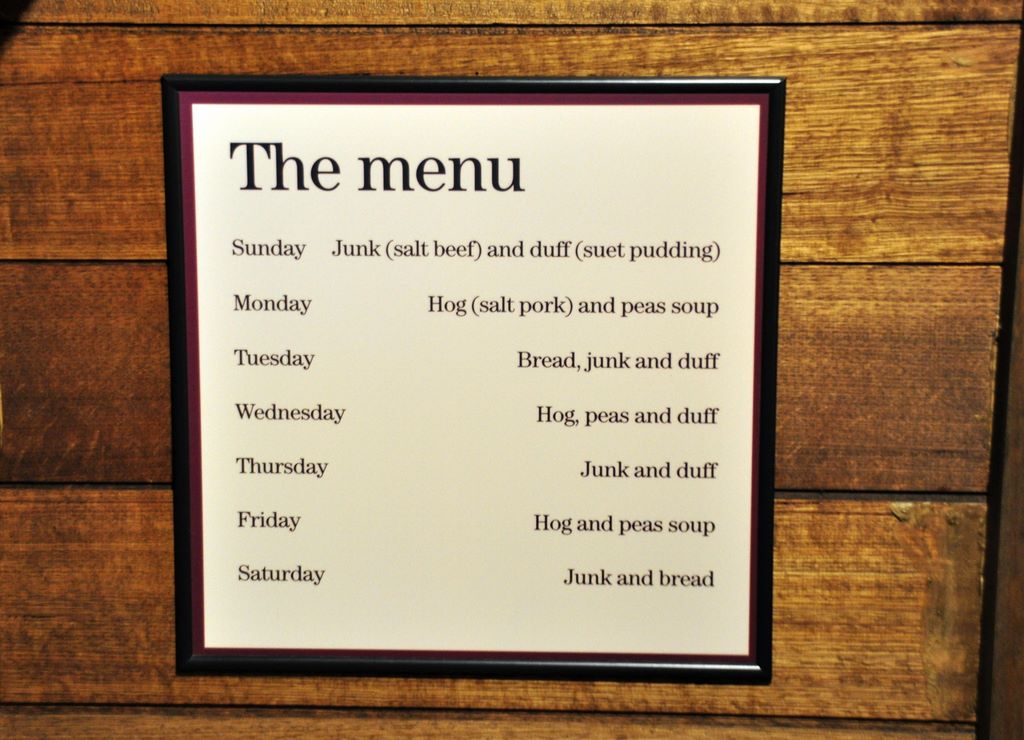 The menu
Sunday Junk (salt beef) and duff (suet pudding)
Monday Hog (salt pork) and peas soup
Tuesday Bread, junk and duff
Wednesday Hog, peas and duff
Thursday Junk and duff
Friday Hog and peas soup
Saturday Junk and bread